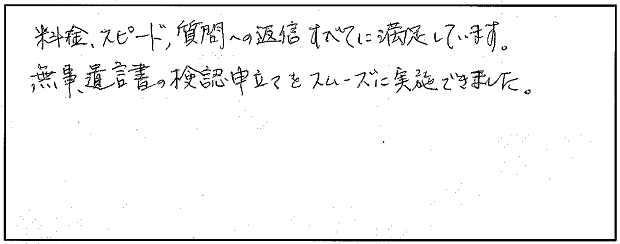 料金、スピード、質問への返信すべてに満足しています。
無事、遺言書の検認申立てをスムーズに実施できました。